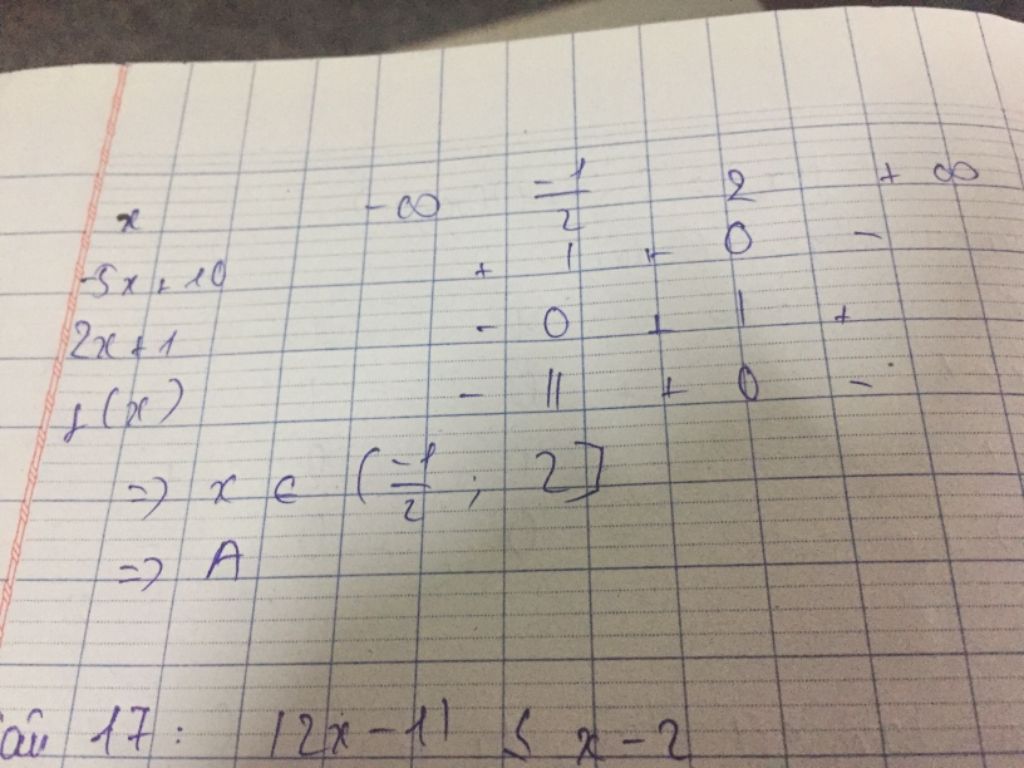 x -∞ -1/2 2 +∞
-5x+10 + | + 0 -
2x+1 - 0 + | +
f(x) - || + 0 -
=> x ∈ (-1/2 ; 2]
=> A
Câu 17 : |2x-1| ≤ x-2